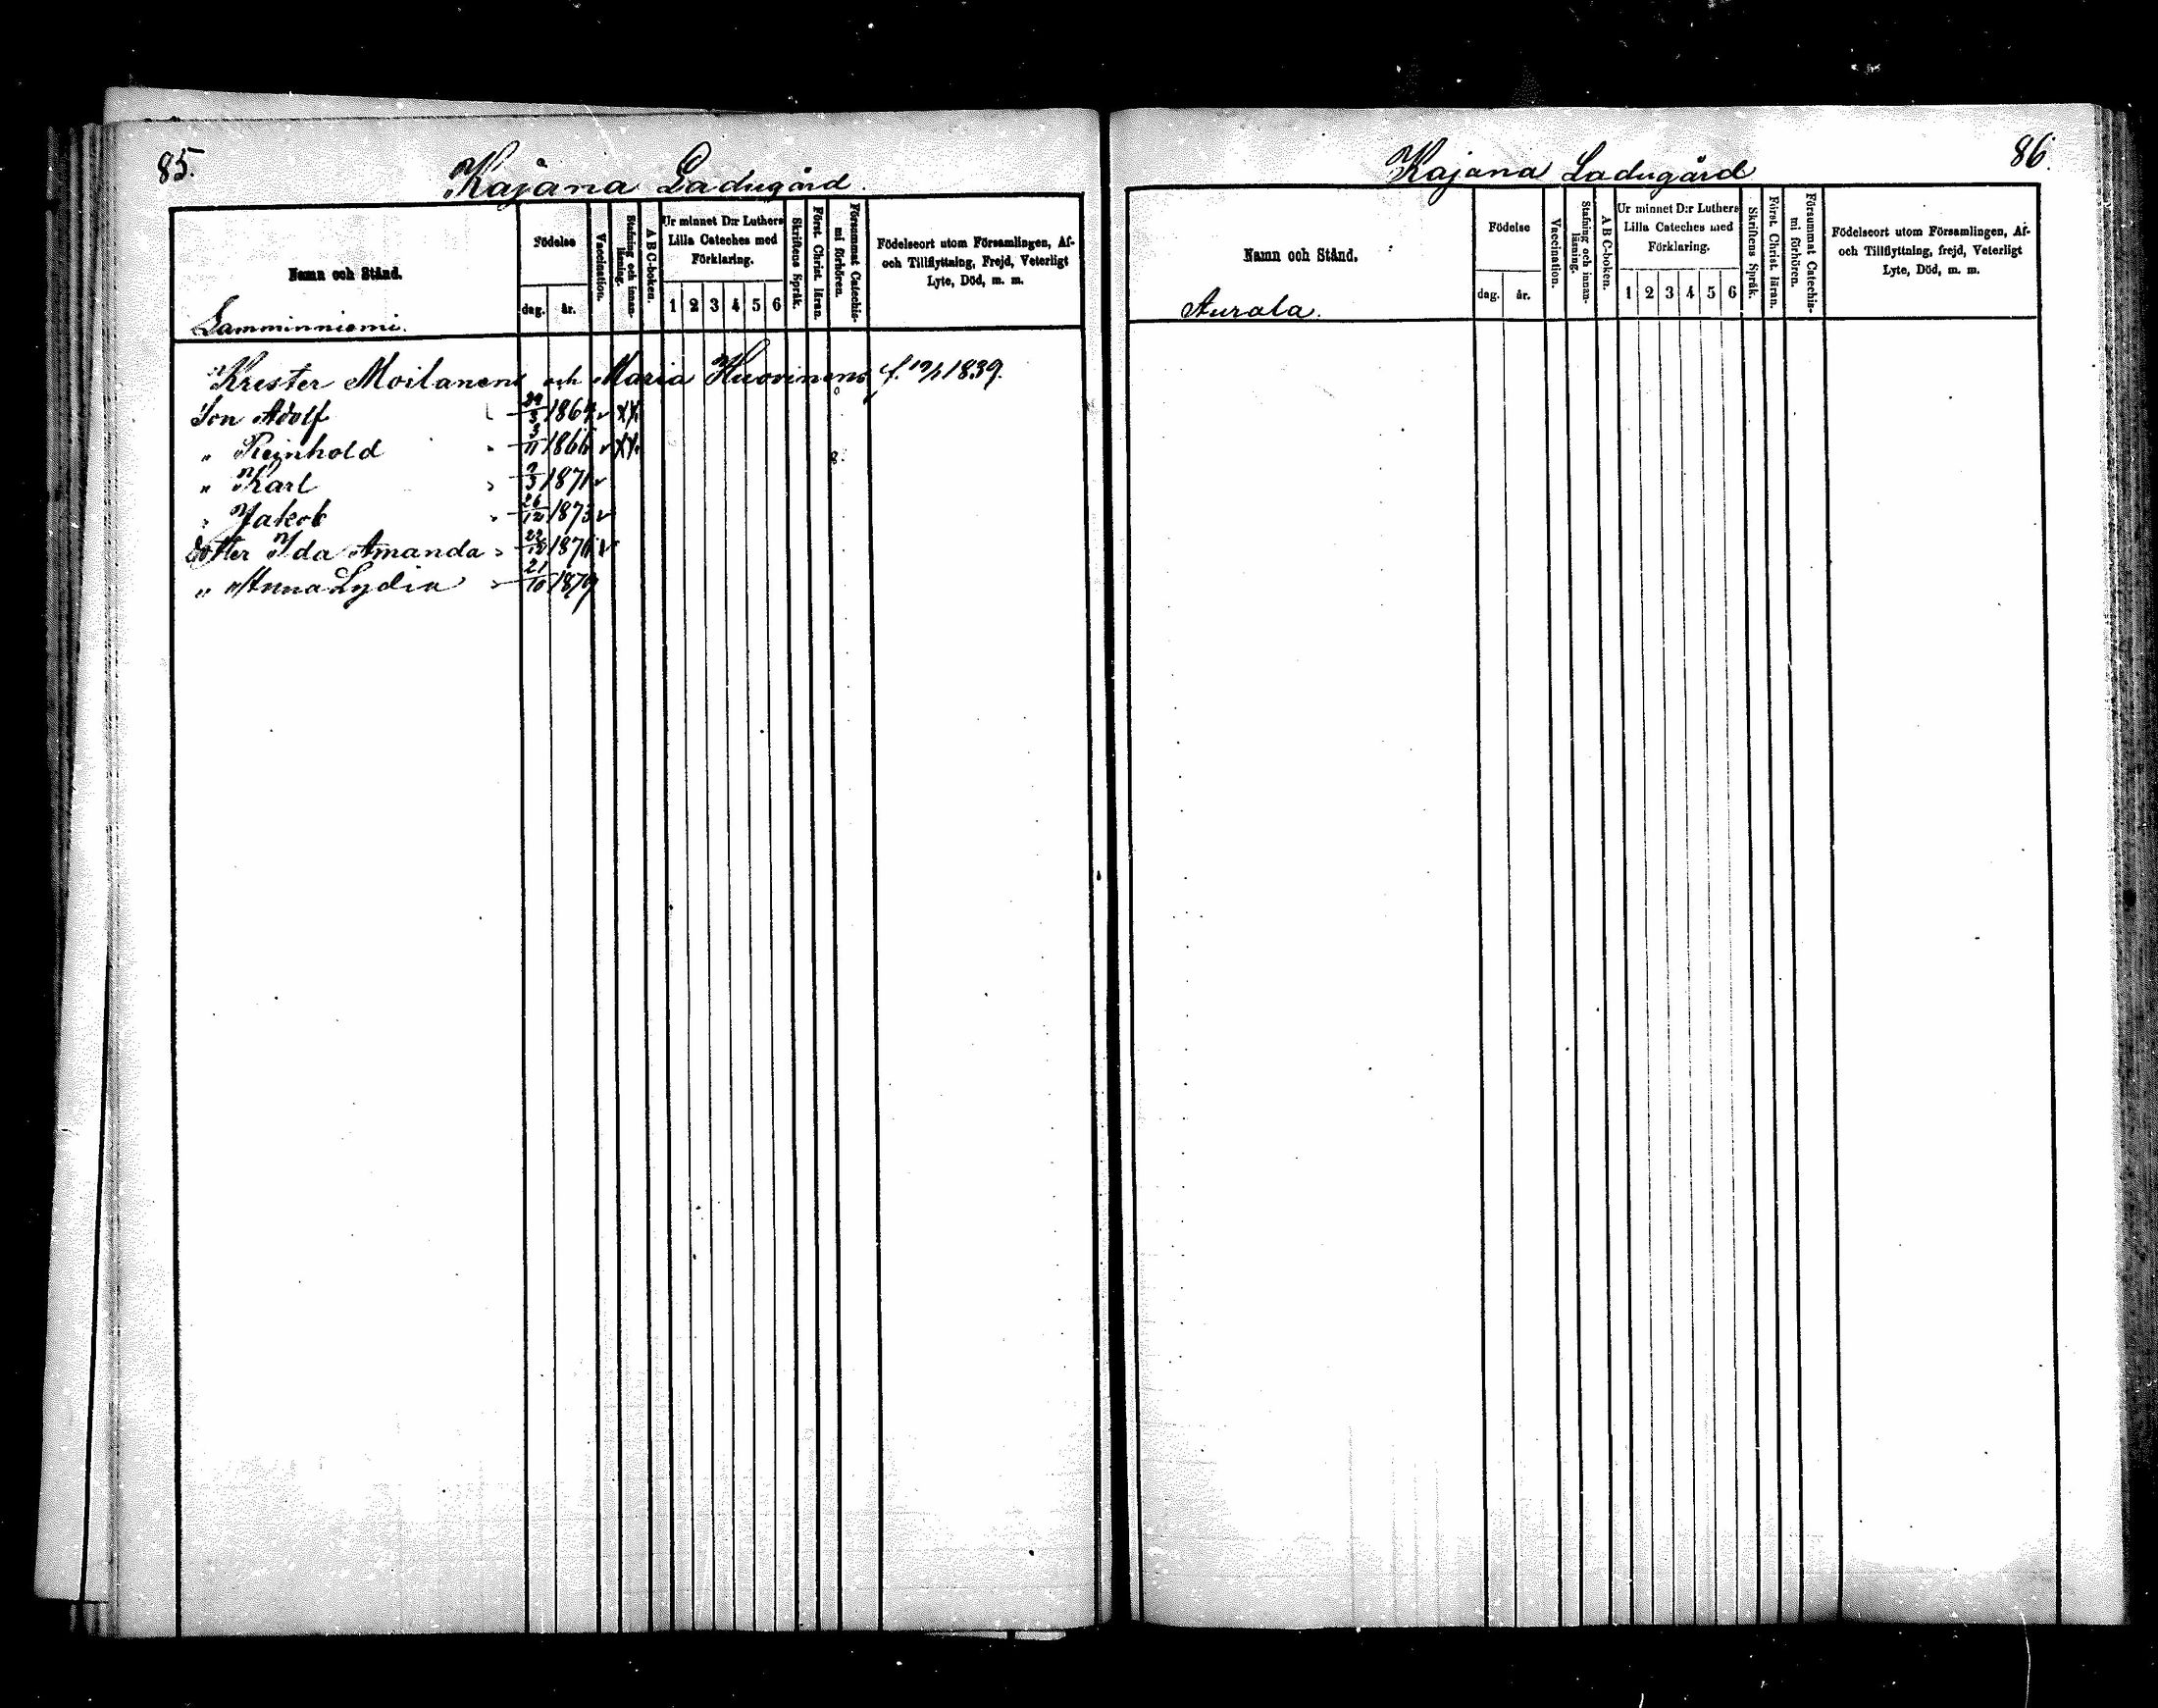 85.
Kajana Ladugård.
Namn och Stånd.
Födelse
dag. år.
Vaccination.
Stafning och innanläsning.
A B C-boken.
Ur minnet D:r Luthers
Lilla Cateches med
Förklaring.
1 2 3 4 5 6
Skriftens Språk.
Först. Christ. läran.
Försummat Catechismi förhören.
Födelseort utom Församlingen, Af-
och Tillflyttning, Frejd, Veterligt
Lyte, Död, m. m.
Lamminniemi.
Krister Moilanens och Maria Huovinens f. 1839.
Son Adolf 29/3 1864 v XX
" Reinhold 3/11 1866 v XX
" Karl 1871 v
" Jakob 26/12 1873 v
dotter Ida Amanda 22/12 1876 v
" Anna Lydia 21/10 1879
86.
Kajana Ladugård
Namn och Stånd.
Födelse
dag. år.
Vaccination.
Stafning och innanläsning.
A B C-boken.
Ur minnet D:r Luthers
Lilla Cateches med
Förklaring.
1 2 3 4 5 6
Skriftens Språk.
Först. Christ. läran.
Försummat Catechismi förhören.
Födelseort utom Församlingen, Af-
och Tillflyttning, frejd, Veterligt
Lyte, Död, m. m.
Aurala.